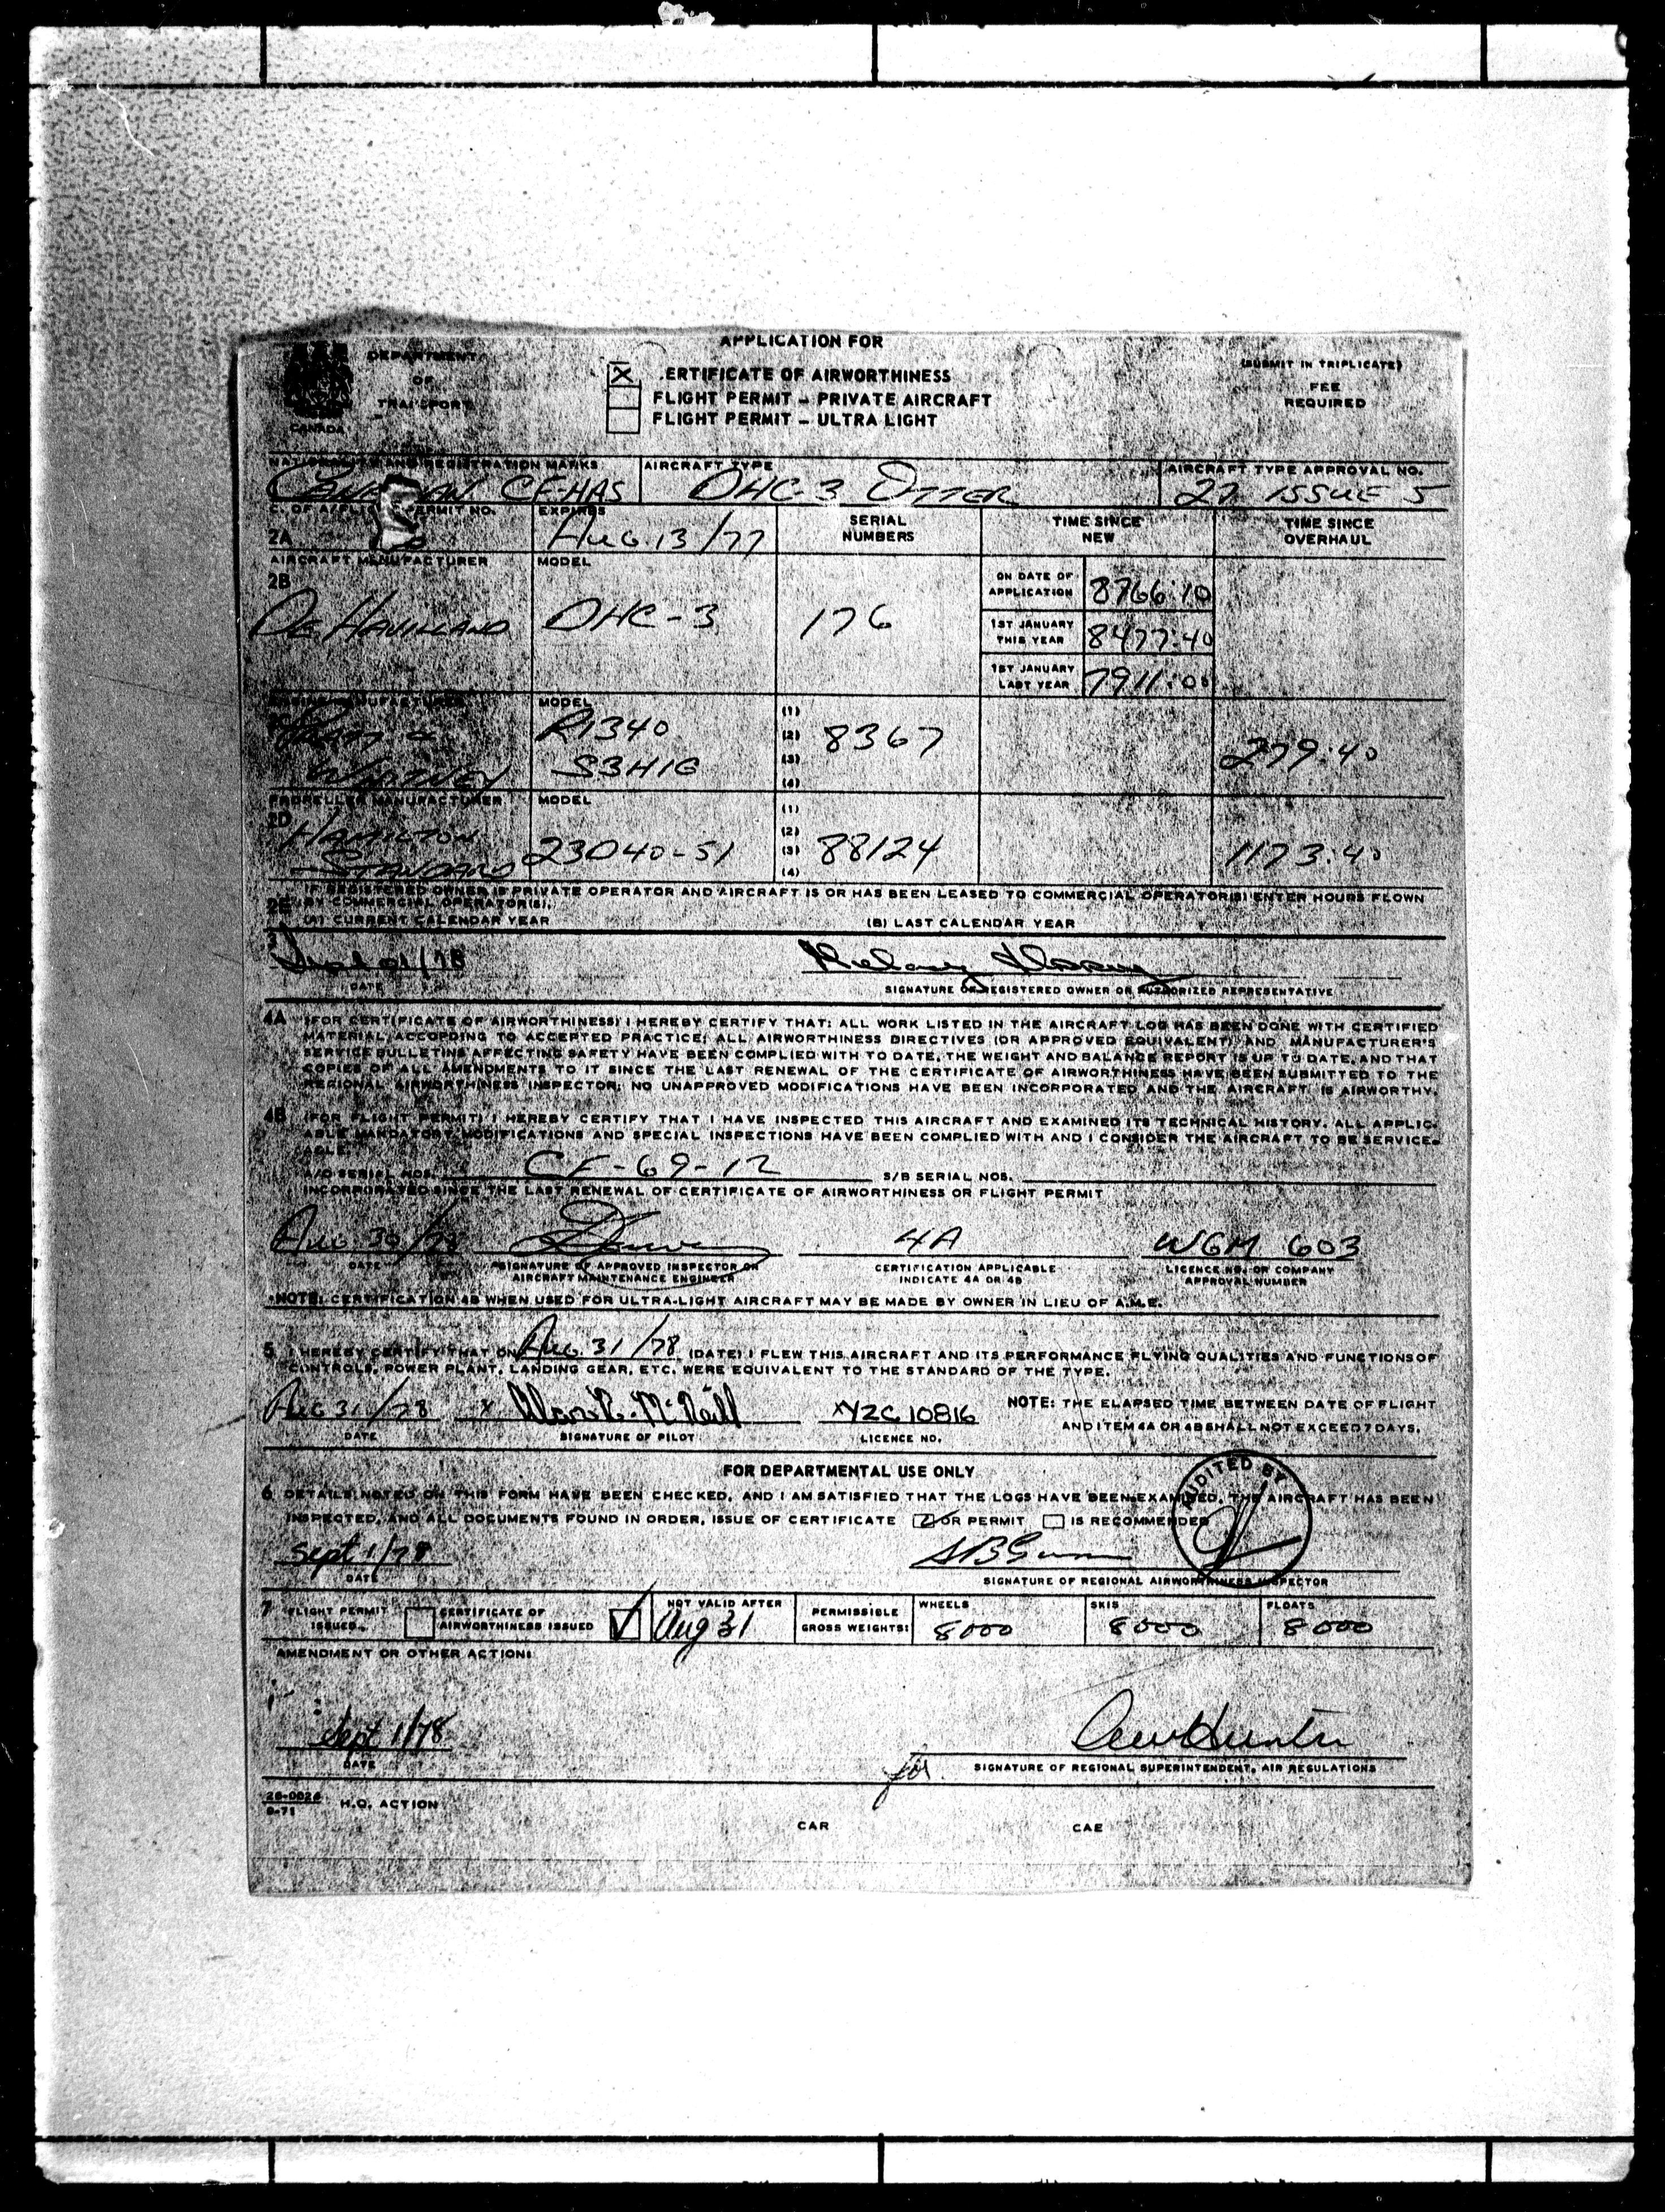 DEPARTMENT
OF
TRANSPORT
CANADA
APPLICATION FOR
X ERTIFICATE OF AIRWORTHINESS
FLIGHT PERMIT – PRIVATE AIRCRAFT
FLIGHT PERMIT – ULTRA LIGHT
(SUBMIT IN TRIPLICATE)
FEE
REQUIRED
NATIONALITY AND REGISTRATION MARKS AIRCRAFT TYPE AIRCRAFT TYPE APPROVAL NO.
CF-HAS DHC-3 OTTER 27 ISSUE 5
PERMIT NO. EXPIRES SERIAL NUMBERS TIME SINCE NEW TIME SINCE OVERHAUL
2A AUG. 13/77
AIRCRAFT MANUFACTURER MODEL
2B
DE HAVILLAND DHC-3 176
ON DATE OF APPLICATION 8766:10
1ST JANUARY THIS YEAR 8477:40
1ST JANUARY LAST YEAR 7911:00
ENGINE MANUFACTURER MODEL
PRATT & WHITNEY R1340 S3H1G (1) (2) (3) (4) 8367 279:40
PROPELLER MANUFACTURER MODEL
2D HAMILTON STANDARD 23D40-51 (1) (2) (3) (4) 88124 1173:40
IF REGISTERED OWNER IS PRIVATE OPERATOR AND AIRCRAFT IS OR HAS BEEN LEASED TO COMMERCIAL OPERATOR(S) ENTER HOURS FLOWN
2E BY COMMERCIAL OPERATOR(S).
(A) CURRENT CALENDAR YEAR (B) LAST CALENDAR YEAR
3 Sept 01/78
DATE SIGNATURE OF REGISTERED OWNER OR AUTHORIZED REPRESENTATIVE
4A (FOR CERTIFICATE OF AIRWORTHINESS) I HEREBY CERTIFY THAT: ALL WORK LISTED IN THE AIRCRAFT LOG HAS BEEN DONE WITH CERTIFIED
MATERIAL, ACCORDING TO ACCEPTED PRACTICE; ALL AIRWORTHINESS DIRECTIVES (OR APPROVED EQUIVALENT) AND MANUFACTURER'S
SERVICE BULLETINS AFFECTING SAFETY HAVE BEEN COMPLIED WITH TO DATE, THE WEIGHT AND BALANCE REPORT IS UP TO DATE, AND THAT
COPIES OF ALL AMENDMENTS TO IT SINCE THE LAST RENEWAL OF THE CERTIFICATE OF AIRWORTHINESS HAVE BEEN SUBMITTED TO THE
REGIONAL AIRWORTHINESS INSPECTOR; NO UNAPPROVED MODIFICATIONS HAVE BEEN INCORPORATED AND THE AIRCRAFT IS AIRWORTHY.
4B (FOR FLIGHT PERMIT) I HEREBY CERTIFY THAT I HAVE INSPECTED THIS AIRCRAFT AND EXAMINED ITS TECHNICAL HISTORY. ALL APPLIC-
ABLE MANDATORY MODIFICATIONS AND SPECIAL INSPECTIONS HAVE BEEN COMPLIED WITH AND I CONSIDER THE AIRCRAFT TO BE SERVICE-
ABLE.
A/D SERIAL NOS. CF-69-12 S/B SERIAL NOS.
INCORPORATED SINCE THE LAST RENEWAL OF CERTIFICATE OF AIRWORTHINESS OR FLIGHT PERMIT
AUG. 30/78 4A WGM 603
DATE *SIGNATURE OF APPROVED INSPECTOR OR AIRCRAFT MAINTENANCE ENGINEER CERTIFICATION APPLICABLE INDICATE 4A OR 4B LICENCE NO. OR COMPANY APPROVAL NUMBER
*NOTE: CERTIFICATION 4B WHEN USED FOR ULTRA-LIGHT AIRCRAFT MAY BE MADE BY OWNER IN LIEU OF A.M.E.
5. I HEREBY CERTIFY THAT ON AUG. 31/78 (DATE) I FLEW THIS AIRCRAFT AND ITS PERFORMANCE FLYING QUALITIES AND FUNCTIONS OF
CONTROLS, POWER PLANT, LANDING GEAR, ETC. WERE EQUIVALENT TO THE STANDARD OF THE TYPE.
AUG 31/78 x XYZC 10816 NOTE: THE ELAPSED TIME BETWEEN DATE OF FLIGHT
AND ITEM 4A OR 4B SHALL NOT EXCEED 7 DAYS.
DATE SIGNATURE OF PILOT LICENCE NO.
FOR DEPARTMENTAL USE ONLY
AUDITED BY
6 DETAILS NOTED ON THIS FORM HAVE BEEN CHECKED, AND I AM SATISFIED THAT THE LOGS HAVE BEEN EXAMINED, THE AIRCRAFT HAS BEEN
INSPECTED, AND ALL DOCUMENTS FOUND IN ORDER, ISSUE OF CERTIFICATE OR PERMIT IS RECOMMENDED
Sept 1/78
DATE SIGNATURE OF REGIONAL AIRWORTHINESS INSPECTOR
7 FLIGHT PERMIT ISSUED CERTIFICATE OF AIRWORTHINESS ISSUED NOT VALID AFTER Aug 31 PERMISSIBLE GROSS WEIGHTS: WHEELS 8000 SKIS 8000 FLOATS 8000
AMENDMENT OR OTHER ACTION:
Sept 1/78
DATE for SIGNATURE OF REGIONAL SUPERINTENDENT, AIR REGULATIONS
26-0026
6-71 H.Q. ACTION
CAR CAE